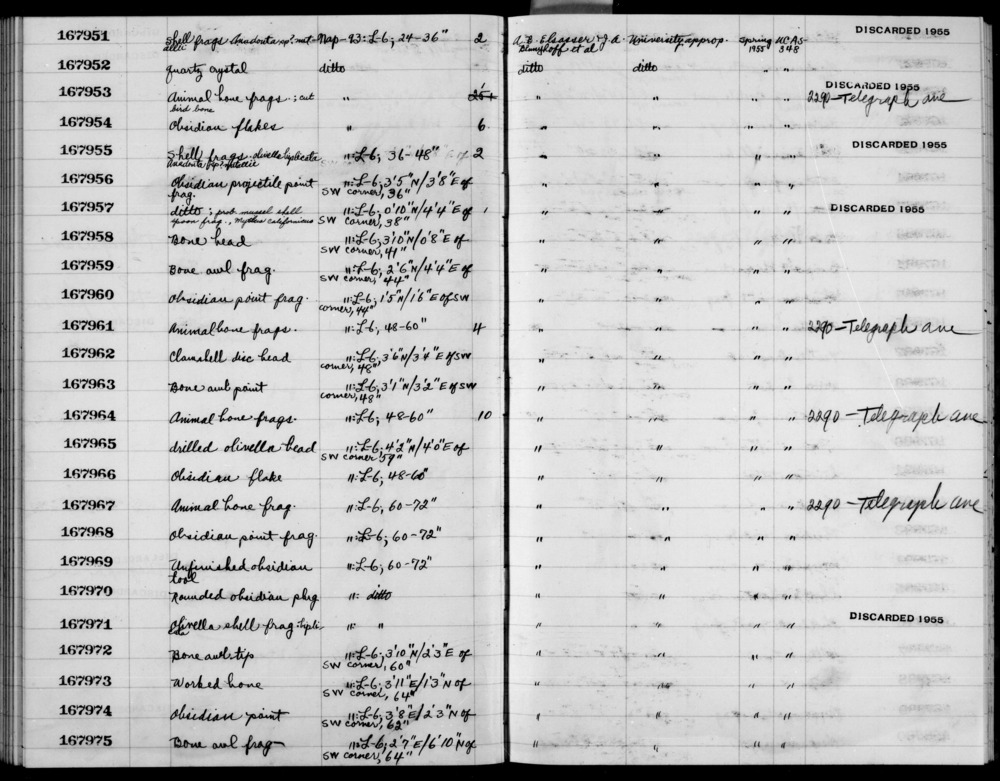 167951 shell frags Anodonta sp? nut- Nap-93: L-6; 24-36" 2 A. B. Elsasser & J. A. University approp. Spring UCAS DISCARDED 1955
allii et al 1955 348
167952 quartz crystal ditto ditto ditto " "
167953 Animal bone frags.; cut " " " " " DISCARDED 1955
bird bone 2290-Telegraph ave
167954 Obsidian flakes " 6 " " " "
167955 Shell frags. olivella biplicata ": L-6; 36-48" 2 " " " " DISCARDED 1955
Anodonta sp?
167956 Obsidian projectile point ": L-6; 3'5"N/3'8"E of " " " "
frag. SW corner, 36"
167957 ditto; prob. mussel shell ": L-6; 0'10"N/4'4"E of 1 " " " " DISCARDED 1955
spoon frag., Mytilus californianus SW corner, 38"
167958 Bone bead ": L-6; 3'0"N/0'8"E of " " " "
SW corner, 41"
167959 Bone awl frag. ": L-6; 2'6"N/4'4"E of " " " "
SW corner, 44"
167960 obsidian point frag. ": L-6; 1'5"N/1'6"E of SW " " " "
corner, 44"
167961 Animal bone frags. ": L-6; 48-60" 4 " " " " 2290-Telegraph ave
167962 Clamshell disc bead ": L-6; 3'6"N/3'4"E of SW " " " "
corner, 48"
167963 Bone awl point ": L-6; 3'1"N/3'2"E of SW " " " "
corner, 48"
167964 Animal bone frags. ": L-6; 48-60" 10 " " " " 2290-Telegraph ave
167965 drilled olivella bead ": L-6; 4'2"N/4'0"E of " " " "
SW corner 59"
167966 Obsidian flake ": L-6; 48-60" " " " "
167967 Animal bone frag. ": L-6; 60-72" " " " " 2290-Telegraph ave
167968 obsidian point frag. ": L-6; 60-72" " " " "
167969 Unfinished obsidian ": L-6; 60-72" " " " "
tool
167970 Rounded obsidian plug ": ditto " " " "
167971 Olivella shell frag. bipli- ": " " " " " DISCARDED 1955
cata
167972 Bone awl tip ": L-6; 3'10"N/2'3"E of " " " "
SW corner, 60"
167973 Worked bone ": L-6; 3'11"E/1'3"N of " " " "
SW corner, 64"
167974 Obsidian point ": L-6; 3'8"E/2'3"N of " " " "
SW corner, 62"
167975 Bone awl frag ": L-6; 2'7"E/6'10"N of " " " "
SW corner, 64"